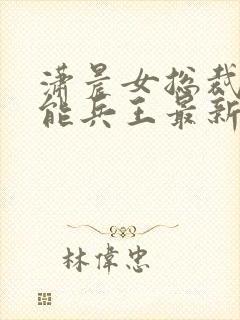 潇晨女总裁
能兵王最新
林偉忠